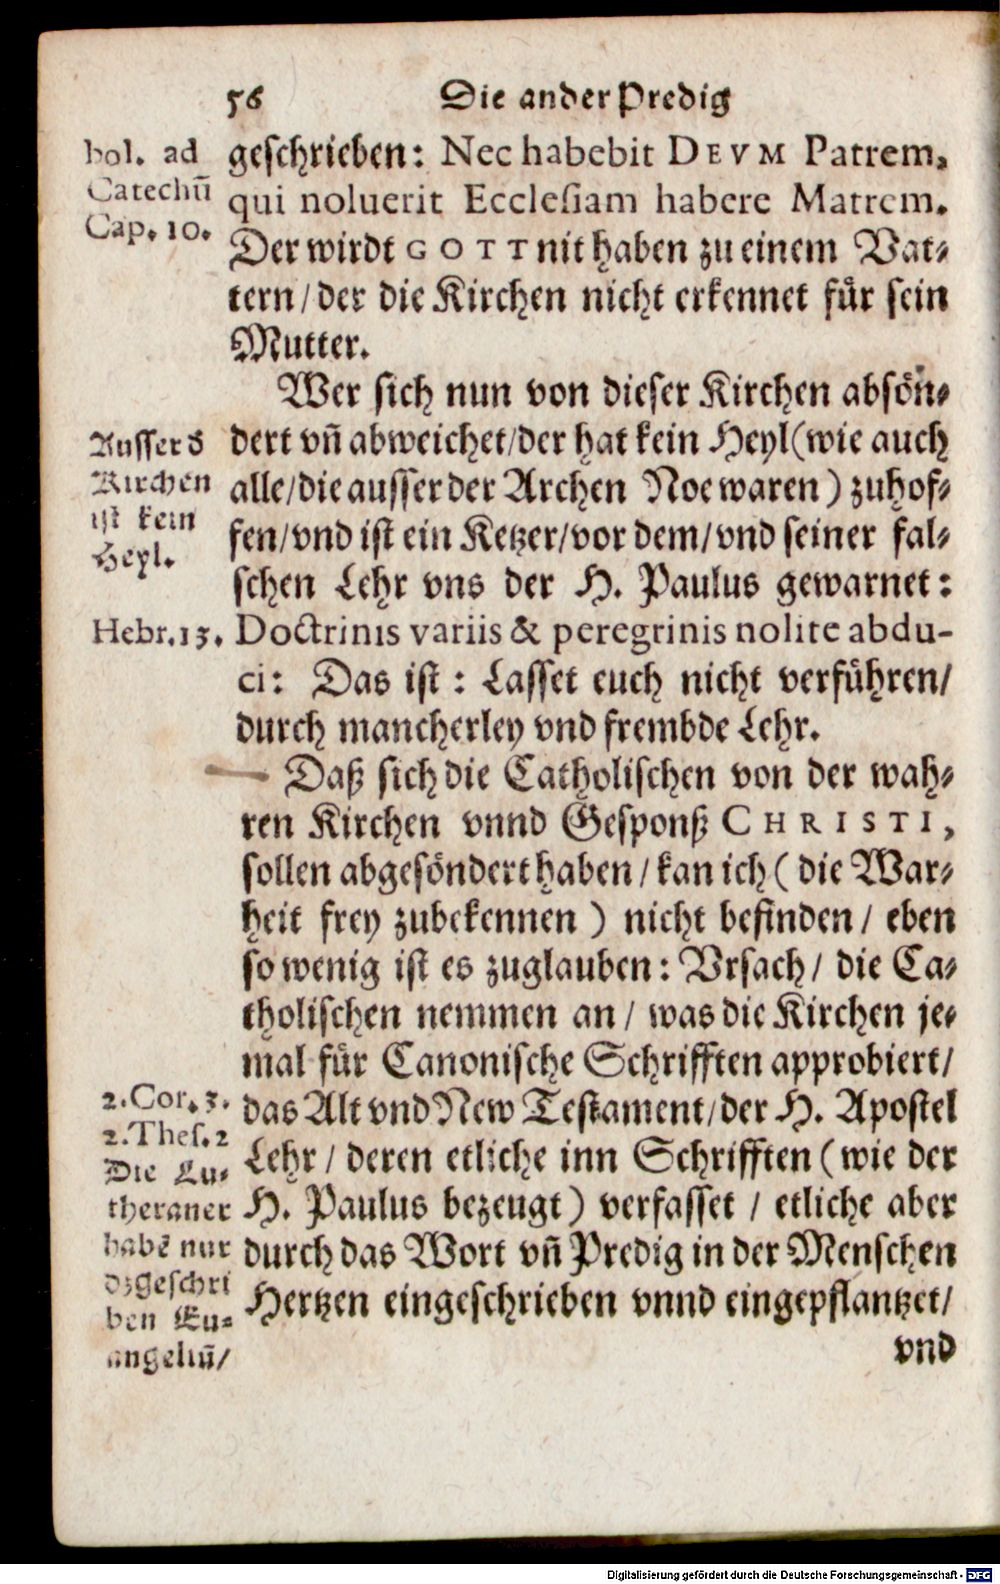 56 Die ander Predig
bol. ad
Catechũ
Cap. 10.
geschrieben: Nec habebit DEVM Patrem,
qui noluerit Ecclesiam habere Matrem.
Der wirdt GOTT nit haben zu einem Vat-
tern / der die Kirchen nicht erkennet fůr sein
Mutter.
Wer sich nun von dieser Kirchen absőn-
Ausser d
Kirchen
ist kein
Heyl.
dert vñ abweichet/der hat kein Heyl (wie auch
alle/die ausser der Archen Noe waren) zuhof-
fen/vnd ist ein Ketzer/vor dem/vnd seiner fal-
schen Lehr vns der H. Paulus gewarnet:
Hebr. 13.
Doctrinis variis & peregrinis nolite abdu-
ci: Das ist: Lasset euch nicht verfůhren/
durch mancherley vnd frembde Lehr.
Daß sich die Catholischen von der wah-
ren Kirchen vnnd Gesponß CHRISTI,
sollen abgesőndert haben / kan ich ( die War-
heit frey zubekennen ) nicht befinden / eben
so wenig ist es zuglauben: Vrsach / die Ca-
tholischen nemmen an / was die Kirchen je-
mal fůr Canonische Schrifften approbiert/
2. Cor. 3.
2. Thes. 2
Die Lu-
theraner
habẽ nur
dz geschri
ben Eu-
angeliũ/
das Alt vnd New Testament/der H. Apostel
Lehr / deren etliche inn Schrifften ( wie der
H. Paulus bezeugt) verfasset / etliche aber
durch das Wort vñ Predig in der Menschen
Hertzen eingeschrieben vnnd eingepflantzet/
vnd
Digitalisierung gefördert durch die Deutsche Forschungsgemeinschaft - DFG